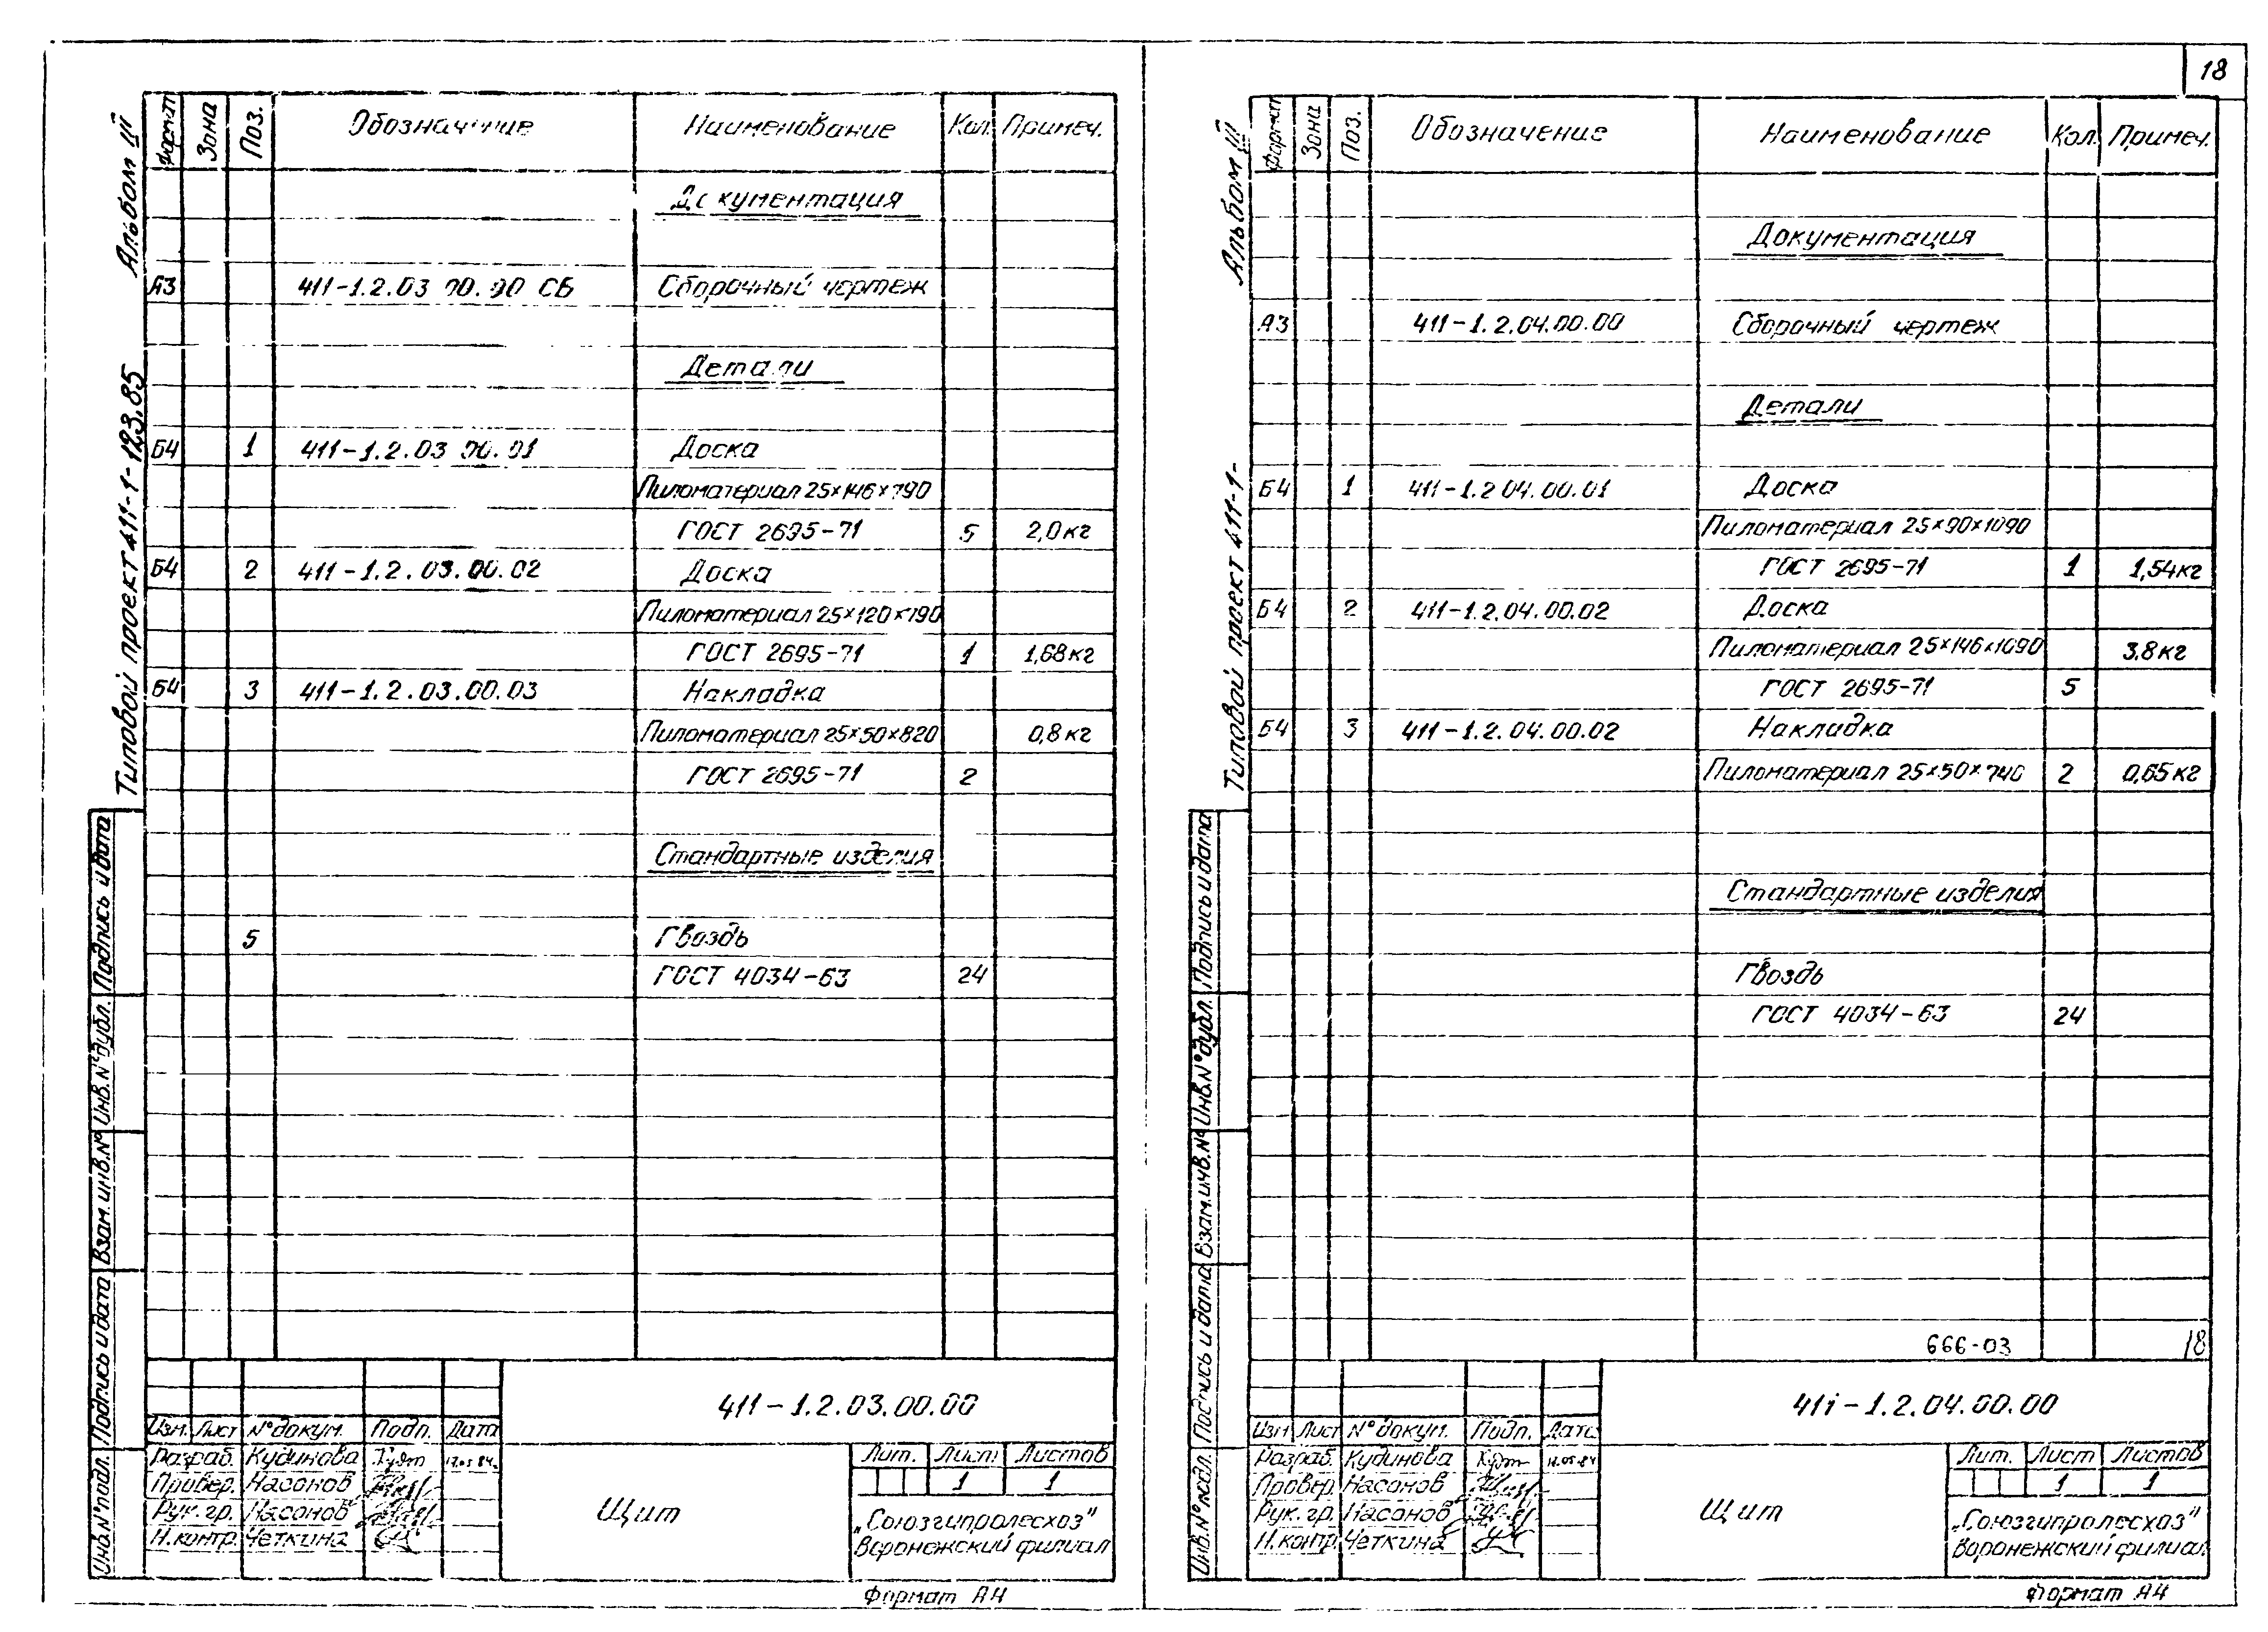 18
Альбом III
Типовой проект 411-1-123.85
Формат Зона Поз. Обозначение Наименование Кол. Примеч.
Документация
А3 411-1.2.03 00.00 СБ Сборочный чертеж
Детали
Б4 1 411-1.2.03 00.01 Доска
Пиломатериал 25×146×790
ГОСТ 2695-71 5 2,0кг
Б4 2 411-1.2.03.00.02 Доска
Пиломатериал 25×120×790
ГОСТ 2695-71 1 1,68кг
Б4 3 411-1.2.03.00.03 Накладка
Пиломатериал 25×50×820 0,8кг
ГОСТ 2695-71 2
Стандартные изделия
5 Гвоздь
ГОСТ 4034-63 24
Инв.N°подл. Подпись и дата Взам.инв.N° Инв.N°дубл. Подпись и дата
411-1.2.03.00.00
Изм. Лист N°докум. Подп. Дата
Разраб. Кудинова 17.05.84.
Провер. Насонов
Рук. гр. Насонов
Н.контр. Четкина
Щит
Лит. Лист Листов
1 1
„Союзгипролесхоз"
Воронежский филиал
Формат А4
Альбом III
Типовой проект 411-1-
Формат Зона Поз. Обозначение Наименование Кол. Примеч.
Документация
А3 411-1.2.04.00.00 Сборочный чертеж
Детали
Б4 1 411-1.2 04.00.01 Доска
Пиломатериал 25×90×1090
ГОСТ 2695-71 1 1,54кг
Б4 2 411-1.2.04.00.02 Доска
Пиломатериал 25×146×1090 3.8кг
ГОСТ 2695-71 5
Б4 3 411-1.2.04.00.02 Накладка
Пиломатериал 25×50×740 2 0,65кг
Стандартные изделия
Гвоздь
ГОСТ 4034-63 24
666-03 18
Инв.N°подл. Подпись и дата Взам.инв.N° Инв.N°дубл. Подпись и дата
411-1.2.04.00.00
Изм Лист N°докум. Подп. Дата
Разраб. Кудинова 17.05.84
Провер. Насонов
Рук. гр. Насонов
Н.контр. Четкина
Щит
Лит. Лист Листов
1 1
„Союзгипролесхоз"
Воронежский филиал
Формат А4